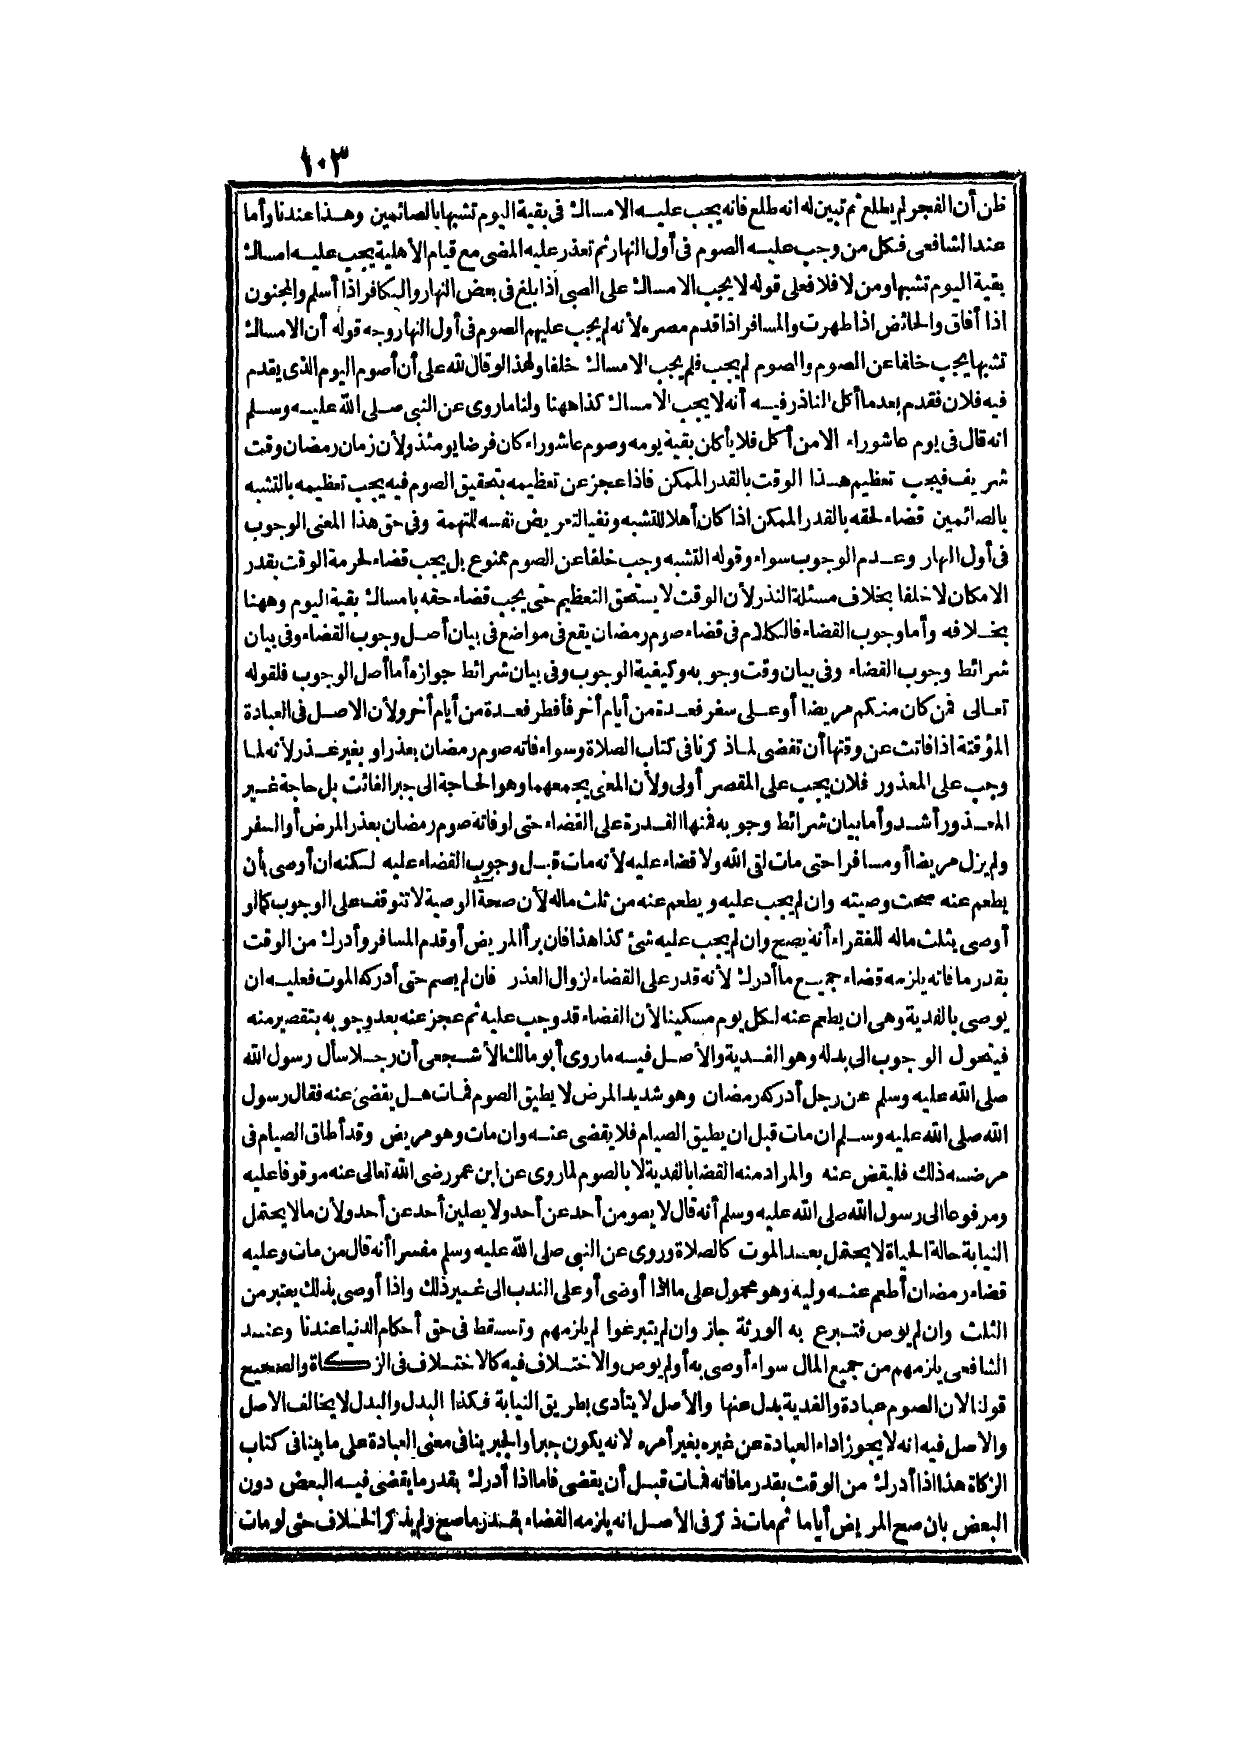 ١٠٣
ظن أن الفجر لم يطلع ثم تبين له انه طلع فانه يجب عليه الامساك في بقية اليوم تشبها بالصائمين وهذا عندنا وأما
عند الشافعي فكل من وجب عليه الصوم في أول النهار ثم تعذر عليه المضى مع قيام الأهلية يجب عليه امساك
بقية اليوم تشبها ومن لا فلا فعلى قوله لا يجب الامساك على الصبى اذا بلغ في بعض النهار والكافر اذا أسلم والمجنون
اذا أفاق والحائض اذا طهرت والمسافر اذا قدم مصره لأنه لم يجب عليهم الصوم في أول النهار وجه قوله أن الامساك
تشبها يجب خلفا عن الصوم والصوم لم يجب فلم يجب الامساك خلفا ولهذا لو قال لله على أن أصوم اليوم الذى يقدم
فيه فلان فقدم بعد ما أكل الناذر فيه أنه لا يجب الامساك كذا ههنا ولنا ما روى عن النبى صلى الله عليه وسلم
انه قال في يوم عاشوراء الا من أكل فلا يأكلن بقية يومه وصوم عاشوراء كان فرضا يومئذ ولأن زمان رمضان وقت
شريف فيجب تعظيم هذا الوقت بالقدر الممكن فاذا عجز عن تعظيمه بتحقيق الصوم فيه يجب تعظيمه بالتشبه
بالصائمين قضاء لحقه بالقدر الممكن اذا كان أهلا للتشبه ونفيا لتعريض نفسه للتهمة وفى حق هذا المعنى الوجوب
في أول النهار وعدم الوجوب سواء وقوله التشبه وجب خلفا عن الصوم ممنوع بل يجب قضاء لحرمة الوقت بقدر
الامكان لا خلفا بخلاف مسئلة النذر لأن الوقت لا يستحق التعظيم حتى يجب قضاء حقه بامساك بقية اليوم وههنا
بخلافه وأما وجوب القضاء فالكلام في قضاء صوم رمضان يقع في مواضع في بيان أصل وجوب القضاء وفى بيان
شرائط وجوب القضاء وفى بيان وقت وجوبه وكيفية الوجوب وفى بيان شرائط جوازه أما أصل الوجوب فلقوله
تعالى فمن كان منكم مريضا أو على سفر فعدة من أيام أخر فأفطر فعدة من أيام أخر ولأن الاصل في العبادة
المؤقتة اذا فاتت عن وقتها أن تقضى لما ذكرنا في كتاب الصلاة وسواء فاته صوم رمضان بعذر او بغير عذر لأنه لما
وجب على المعذور فلان يجب على المقصر أولى ولأن المعنى يجمعهما وهو الحاجة الى جبر الفائت بل حاجة غير
المعذور أشد وأما بيان شرائط وجوبه فمنها القدرة على القضاء حتى لو فاته صوم رمضان بعذر المرض أو السفر
ولم يزل مريضا أو مسافرا حتى مات لقى الله ولا قضاء عليه لأنه مات قبل وجوب القضاء عليه لكنه ان أوصى بأن
يطعم عنه صحت وصيته وان لم يجب عليه ويطعم عنه من ثلث ماله لأن صحة الوصية لا تتوقف على الوجوب كما لو
أوصى بثلث ماله للفقراء أنه يصح وان لم يجب عليه شئ كذا هذا فان برأ المريض أو قدم المسافر وأدرك من الوقت
بقدر ما فاته يلزمه قضاء جميع ما أدرك لأنه قدر على القضاء لزوال العذر فان لم يصم حتى أدركه الموت فعليه ان
يوصى بالفدية وهى ان يطعم عنه لكل يوم مسكينا لأن القضاء قد وجب عليه ثم عجز عنه بعد وجوبه بتقصير منه
فيتحول الوجوب الى بدله وهو الفدية والأصل فيه ما روى أبو مالك الأشجعى أن رجلا سأل رسول الله
صلى الله عليه وسلم عن رجل أدركه رمضان وهو شديد المرض لا يطيق الصوم فمات هل يقضى عنه فقال رسول
الله صلى الله عليه وسلم ان مات قبل ان يطيق الصيام فلا يقضى عنه وان مات وهو مريض وقد أطاق الصيام في
مرضه ذلك فليقض عنه والمراد منه القضا بالفدية لا بالصوم لما روى عن ابن عمر رضى الله تعالى عنه موقوفا عليه
ومرفوعا الى رسول الله صلى الله عليه وسلم أنه قال لا يصومن أحد عن أحد ولا يصلين أحد عن أحد ولأن ما لا يحتمل
النيابة حالة الحياة لا يحتمل بعد الموت كالصلاة وروى عن النبى صلى الله عليه وسلم مفسرا أنه قال من مات وعليه
قضاء رمضان أطعم عنه وليه وهو محمول على ما اذا أوصى أو على الندب الى غير ذلك واذا أوصى بذلك يعتبر من
الثلث وان لم يوص فتبرع به الورثة جاز وان لم يتبرعوا لم يلزمهم وتسقط في حق أحكام الدنيا عندنا وعند
الشافعى يلزمهم من جميع المال سواء أوصى به أو لم يوص والاختلاف فيه كالاختلاف في الزكاة والصحيح
قولنا لان الصوم عبادة والفدية بدل عنها والأصل لا يتأدى بطريق النيابة فكذا البدل والبدل لا يخالف الاصل
والاصل فيه انه لا يجوز اداء العبادة عن غيره بغير أمره لانه يكون جبرا والجبر ينافى معنى العبادة على ما بينا في كتاب
الزكاة هذا اذا أدرك من الوقت بقدر ما فاته فمات قبل أن يقضى فاما اذا أدرك بقدر ما يقضى فيه البعض دون
البعض بان صح المريض أياما ثم مات ذكر في الأصل انه يلزمه القضاء بقدر ما صح ولم يذكر الخلاف حتى لو مات